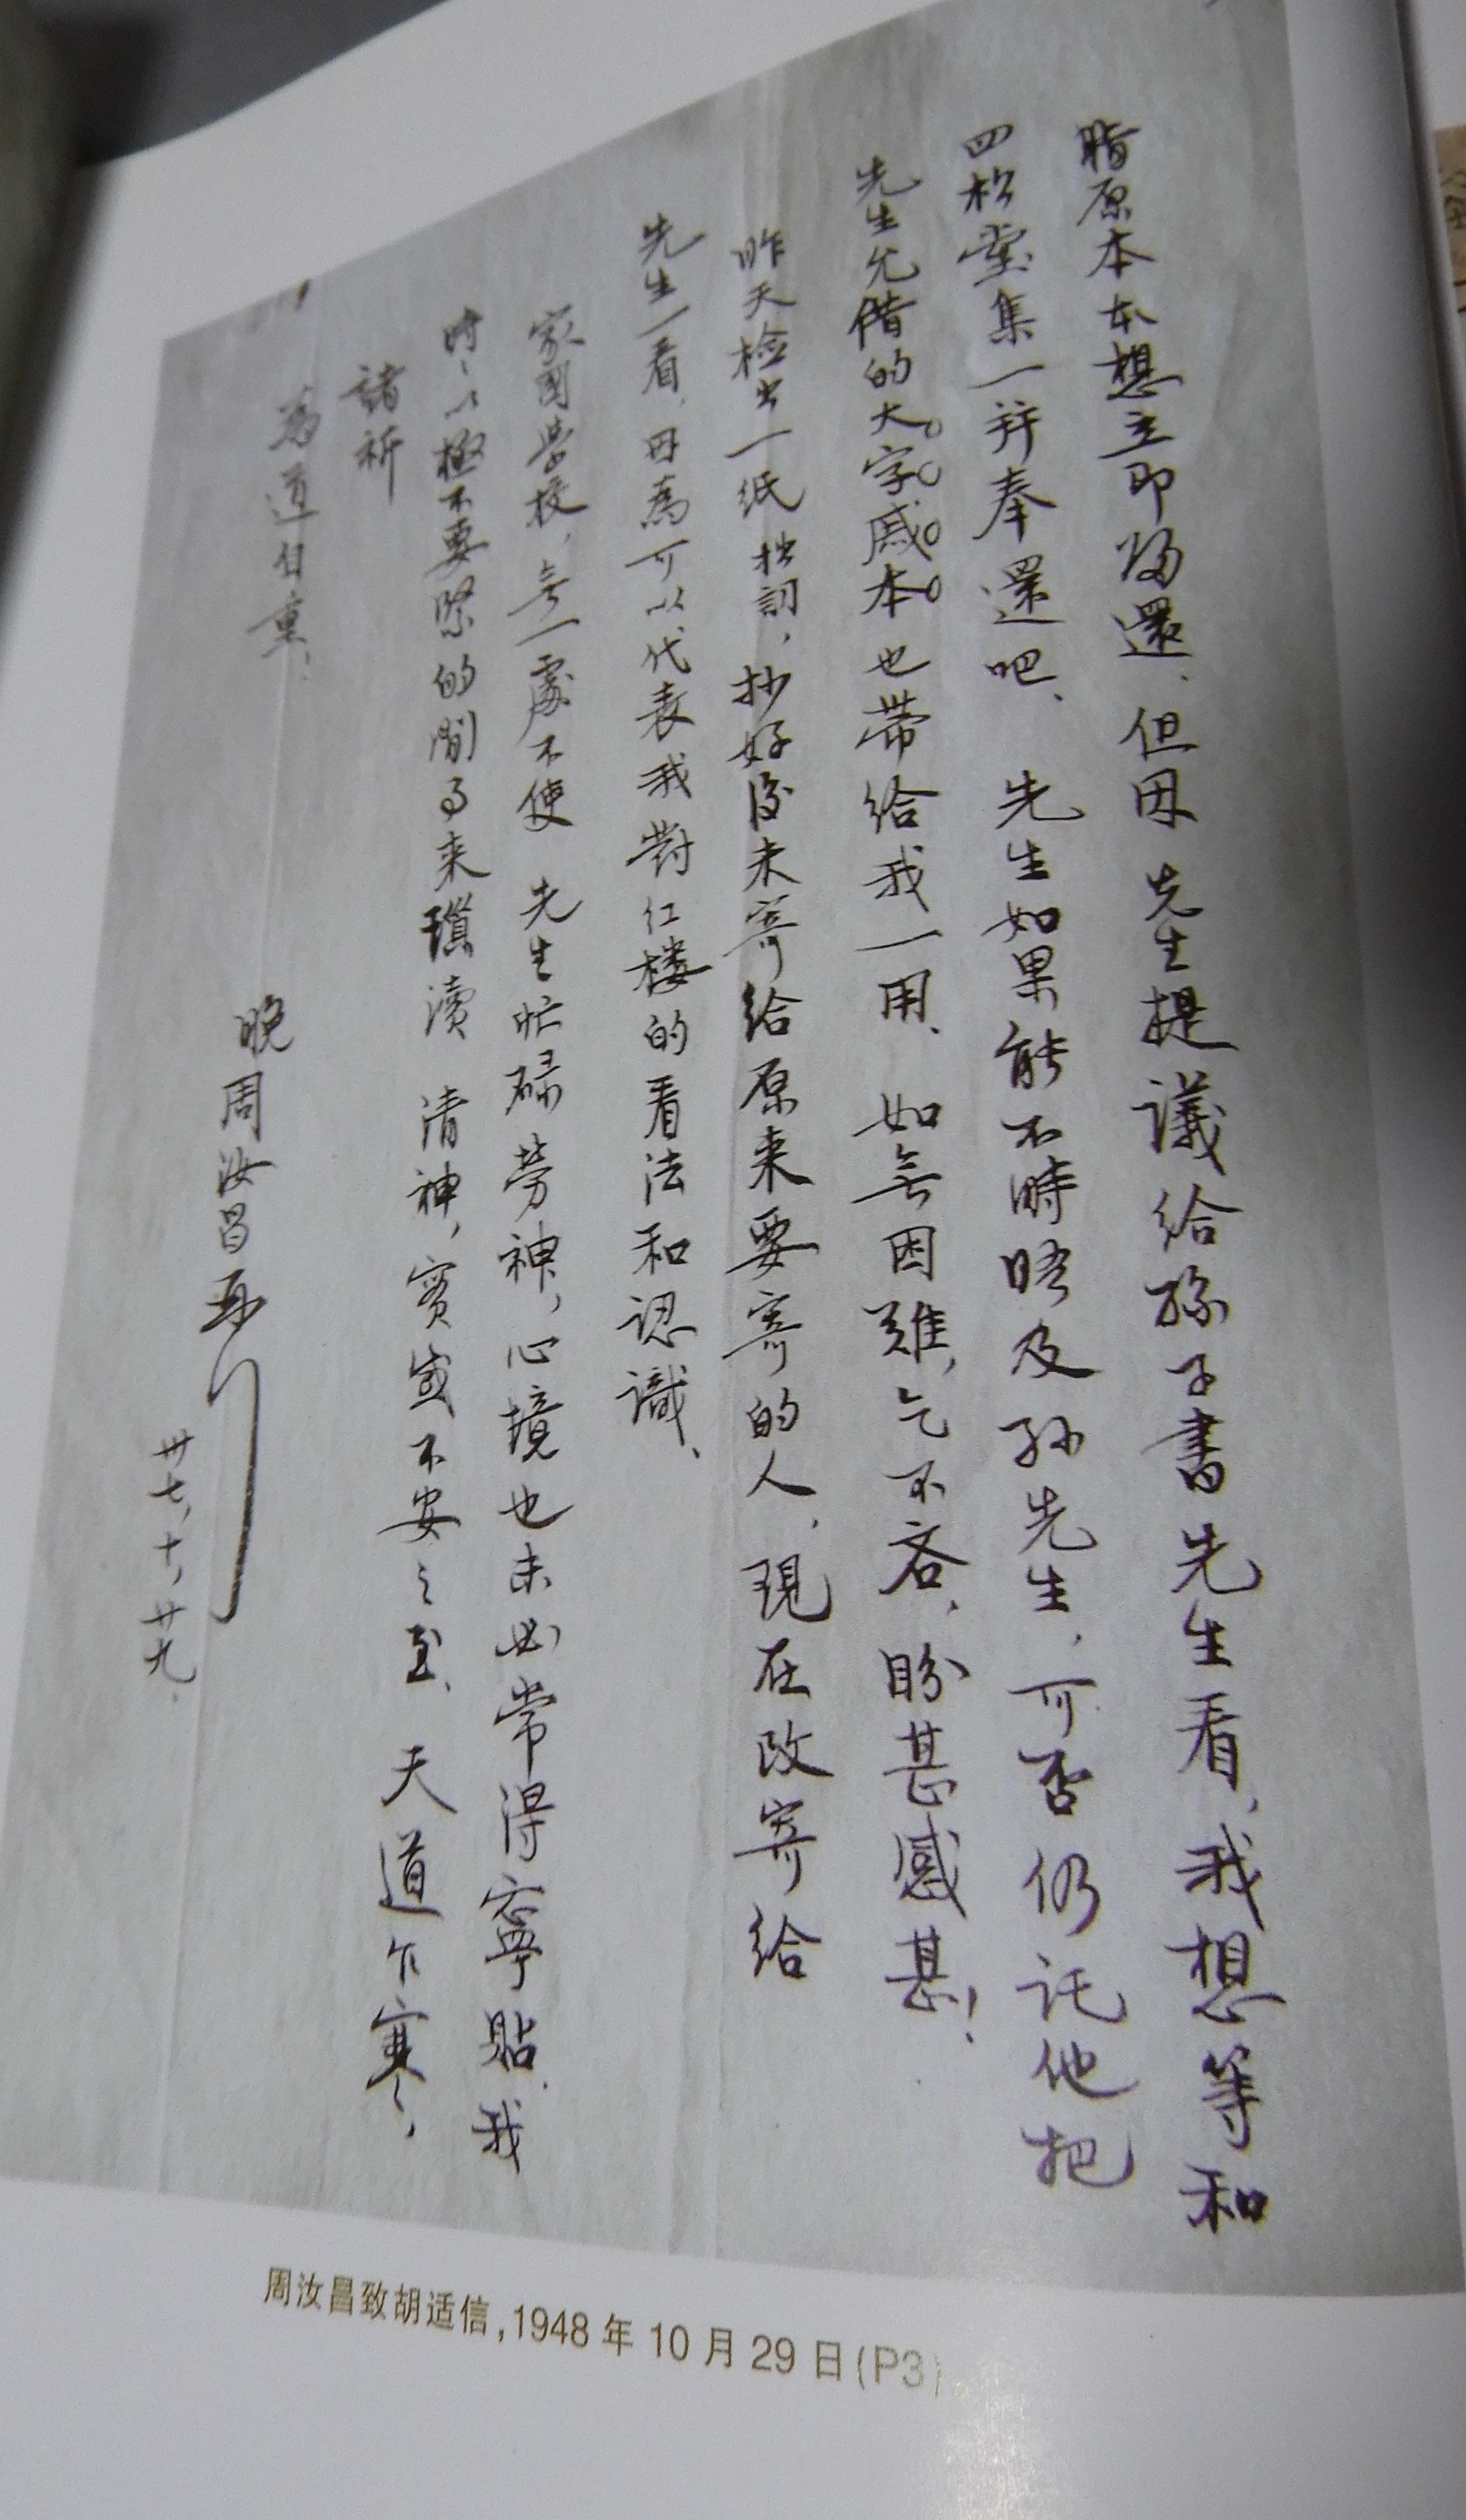 脂原本本想立即歸還、但因 先生提議給孫子書先生看、我想等和
四松堂集一并奉還吧、 先生如果能不時晤及孙先生、可否仍託他把
先生允借的大字戚本也带给我一用、如無困難,乞不吝、盼甚感甚!
昨天检出一紙拙詞,抄好後未寄给原来要寄的人、現在改寄给
先生一看,因為可以代表我對红楼的看法和認識、
家國学校,無一處不使 先生忙碌劳神,心境也未必常得寧貼.我
時〻以極不要緊的閒事来瑣瀆 清神,實感不安之至、 天道乍寒〻,
諸祈
為道自重、
晚周汝昌再
卅七、十、廿九.
周汝昌致胡适信,1948 年 10 月 29 日(P3)